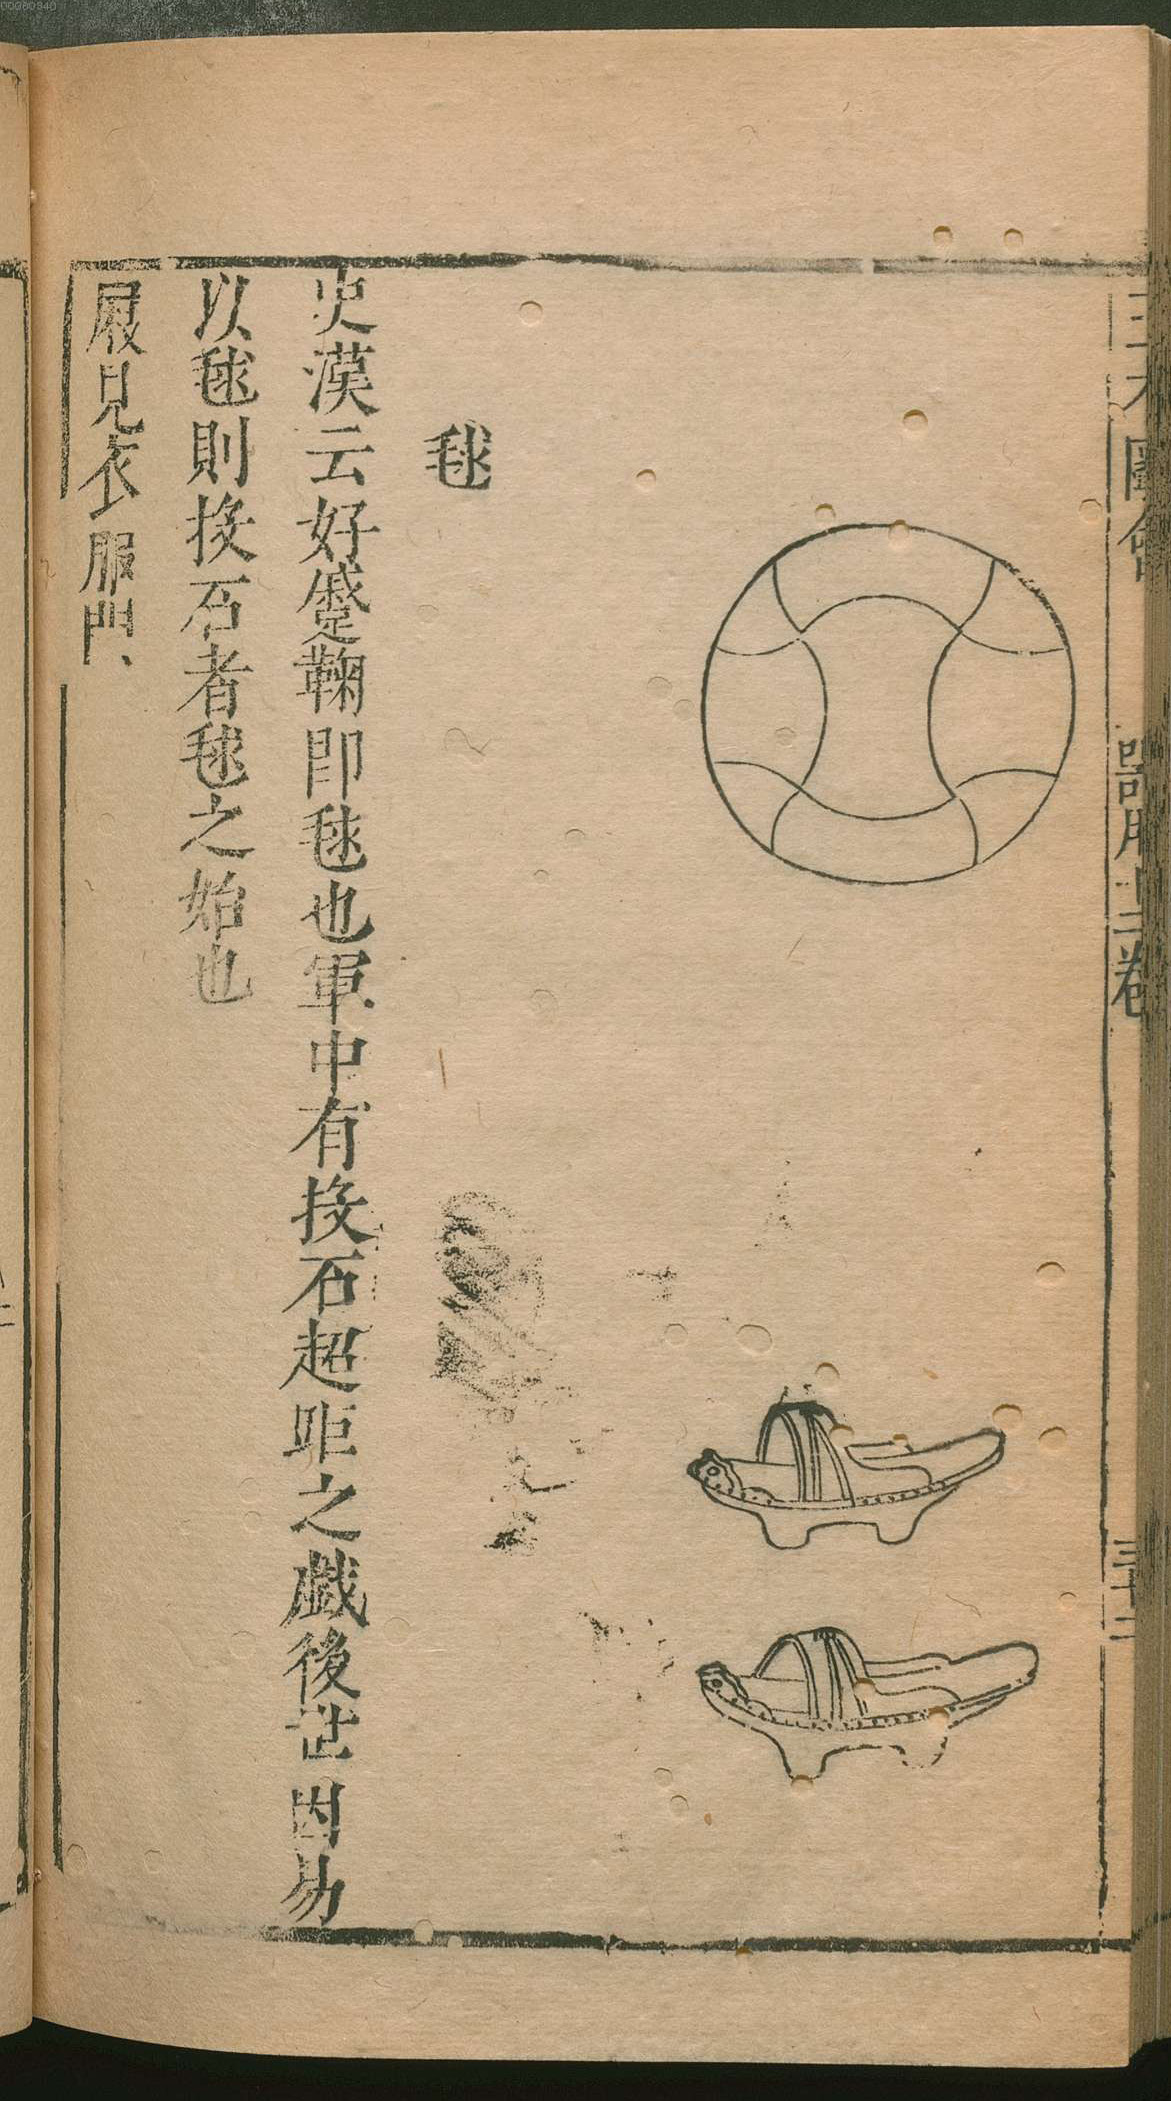 三才圖會
器用十二卷
毬
史漢云好蹙鞠即毬也軍中有投石超距之戲後世因易
以毬則投石者毬之始也
屐見衣服門